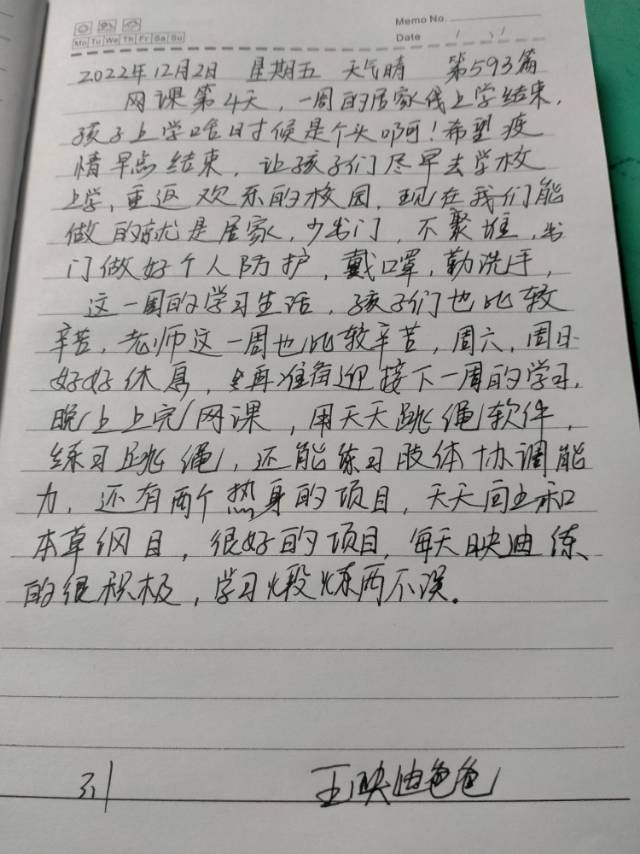 Memo No.
Mo Tu We Th Fr Sa Su
Date / /
2022年12月2日 星期五 天气晴 第593篇
网课第4天,一周的居家线上学结束,
孩子上学啥时候是个头啊!希望疫
情早点结束,让孩子们尽早去学校
上学,重返欢乐的校园,现在我们能
做的就是居家,少出门,不聚堆,出
门做好个人防护,戴口罩,勤洗手,
这一周的学习生活,孩子们也比较
辛苦,老师这一周也比较辛苦,周六,周日
好好休息,再准备迎接下一周的学习,
晚上上完网课,用天天跳绳软件,
练习跳绳,还能练习肢体协调能
力,还有两个热身的项目,天天向上和
本草纲目,很好的项目,每天映迪练
的很积极,学习煅炼两不误。
31
王映迪爸爸